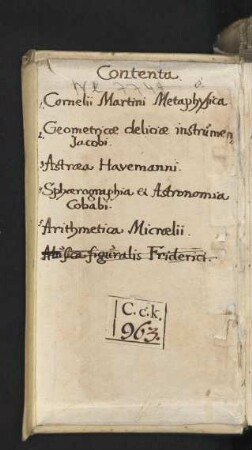 Contenta.
1. Cornelii Martini Metaphysica
2. Geometricæ deliciæ instrumen
Jacobi.
3. Astræa Havemanni.
4. Sphærographia et Astronomia
Cobabi.
5. Arithmetica Micrælii.
Musica figuralis Friderici.
C.c.k.
963.